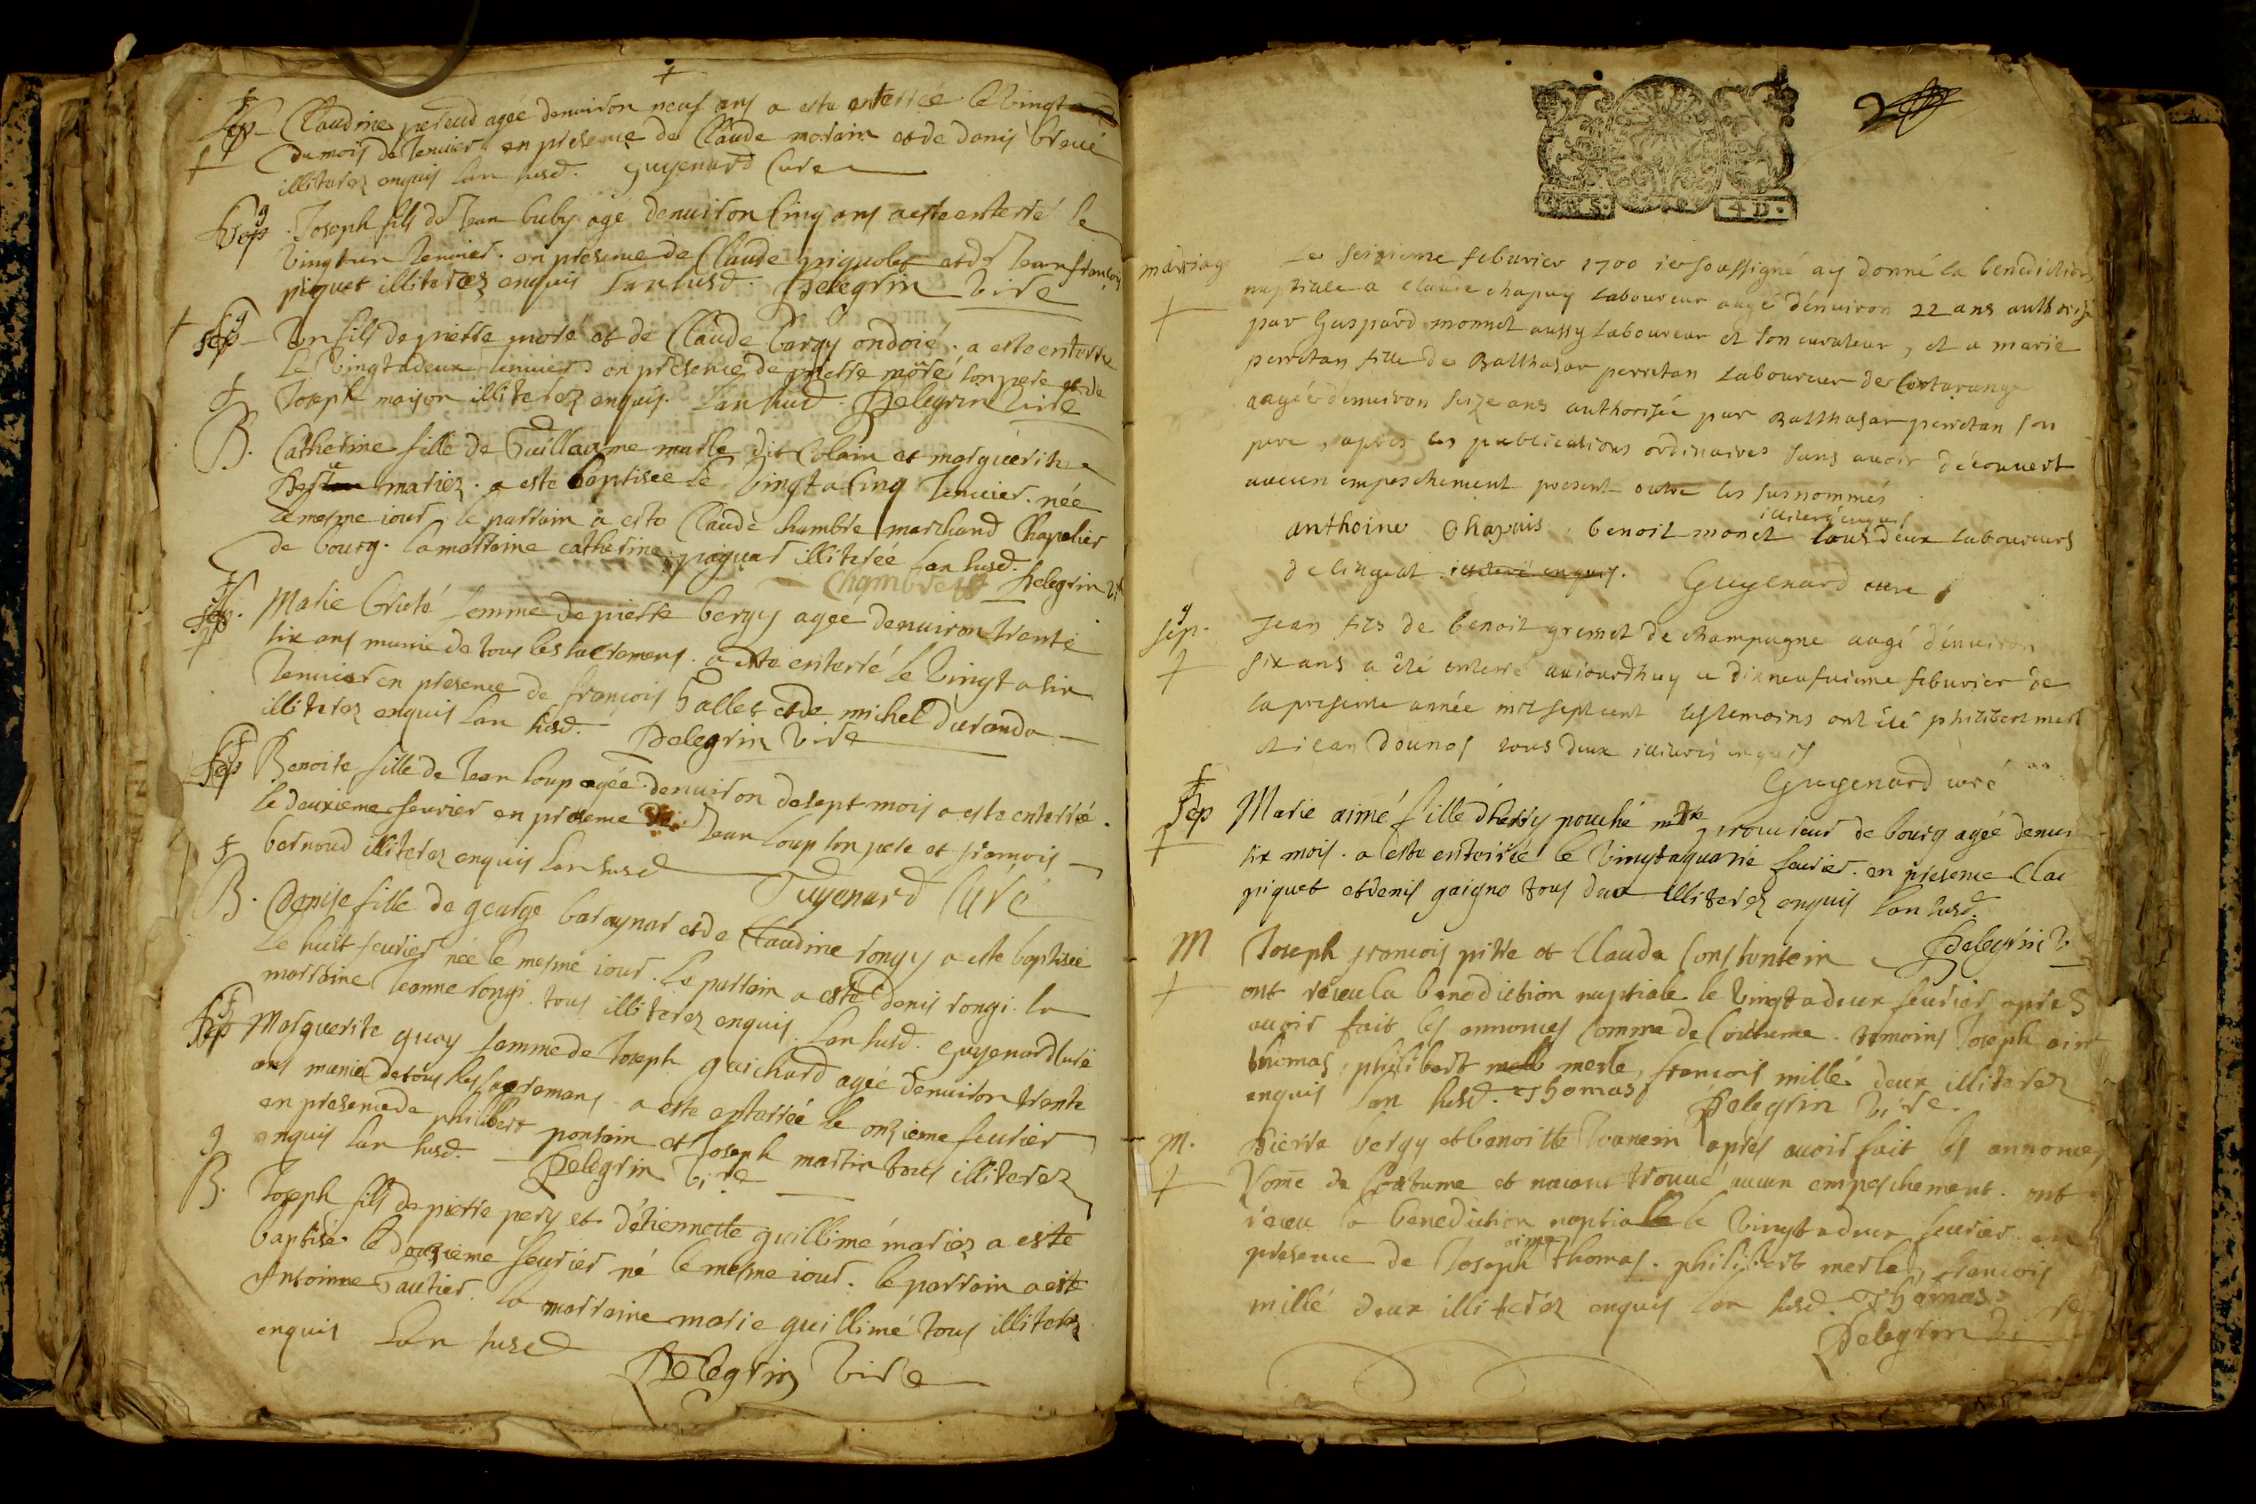 f
Sep Claudine perend agée denuiron neuf ans a este enterrée le vingt
+ du mois de Ienuier en presence de Claude morain et de denis
illiterez enquis lan susd. Guyenard Cure
g
Sep Joseph fils de Jean buby agé denuiron Cinq ans a este enterré le
vingt un Ienuier. en presence de Claude piquolet et de Jean francois
piquet illiterez enquis lan susd. Pelegrin vire
g
+ sep Un fils de pierre moré et de Claude bargy ondoié. a este enterre
le vingt a deux Ienuier en presence de pierre moré son pere et de
Joseph maison illiterez enquis. lan susd Pelegrin vire
f
B. Catherine fille de Guillaume marle dit Colain et marguerite
mariez. a este baptisee le vingt a Cinq Ienuier. née
le mesme iour. le parrain a este Claude Chambre marchand Chapelier
de bourg. la marraine catherine piquar illiterée lan susd.
Chambre Pelegrin vi
f
Sep. Marie femme de pierre bergy agée denuiron trente
+ six ans munie de tous les sacremens. a este enterré le vingt a six
Ienuier en presence de francois hallet et de michel durando
illiterez enquis lan susd. Pelegrin vire
f
Sep Benoite fille de Jean loup agée denuiron de sept mois a este enterrée.
le deuxieme feurier en presence de Jean loup son pere et francois
bernoud illiterez enquis lan susd Guyenard Curé
f
B. Denise fille de george baraynar et de Claudine rongy a este baptisée
le huit feurier née le mesme iour. le parrain a este denis rongi. la
marraine Jeanne rongi. tous illiterez enquis. lan susd. Guyenard Curé
f
Sep Marguerite guay femme de Joseph guichard agée denuiron trente
ans munie de tous les sacremens a este enterrée le onzieme feurier
en presence de philibert pontain et Joseph martin tous illiterez
enquis lan susd. Pelegrin vire
g
B. Joseph fils de pierre pery et détiennette guillimé mariez a este
baptisé le douzieme feurier né le mesme iour. le parrain a este
Antoinne Gautier. la marraine marie guillimé tous illiterez
enquis lan susd
Pelegrin vire
mariage Le seizieme feburier 1700 ie soussigné ay donné la benediction
+ nuptiale a claude chapuy laboureur aagé dénuiron 22 ans authorisé
par Gaspard monnet aussy laboureur et son curateur, et a marie
perretan fille de Balthasar perretan laboureur de Certarange
aagée dénuiron seize ans authorisée par Balthasar perretan son
pere, apres les publications ordinaires sans auoir découuert
aucun empeschement present outre les surnommés
illiteré enquis
anthoine Chapuis, benoit monet tous deux laboureurs
de lingeat illiteré enquis. Guyenard cure
g
sep. Jean fils de benoit gremet de champagne aagé dénuiron
+ six ans a été enterré auiourdhuy ce dixneufuieme feburier de
la presente année mil sept cent les temoins ont été philibert merl
et iean Dounos tous deux illiterés enquis
Guyenard curé
f
Sep Marie aimé fille dhenry pouché procureur de bourg agée denui
+ six mois. a este enterrée le vingt a quatrie feurier. en presence Clau
piquet et denis gaigne tous deux illiterez enquis lan susd.
Pelegrin v
M Joseph francois pitre et Claude Constantein
+ ont receu la benediction nuptiale le vingt a deux feurier apres
auoir fait les annonces Comme de Coutume. temoins Joseph aimé
thomas, philibert merle, francois millé deux illiterez
enquis lan susd. Thomas Pelegrin vire.
M. Pierre bergy et benoitte Ivanein apres auoir fait les annonces
+ Come de Coutume et nayant trouué aucun empeschement. ont
receu la benediction nuptiale le vingt a deux feurier en
aime
presence de Joseph thomas. philibert merle, francois
millé deux illiterez enquis lan susd. Thomas
Pelegrin vire